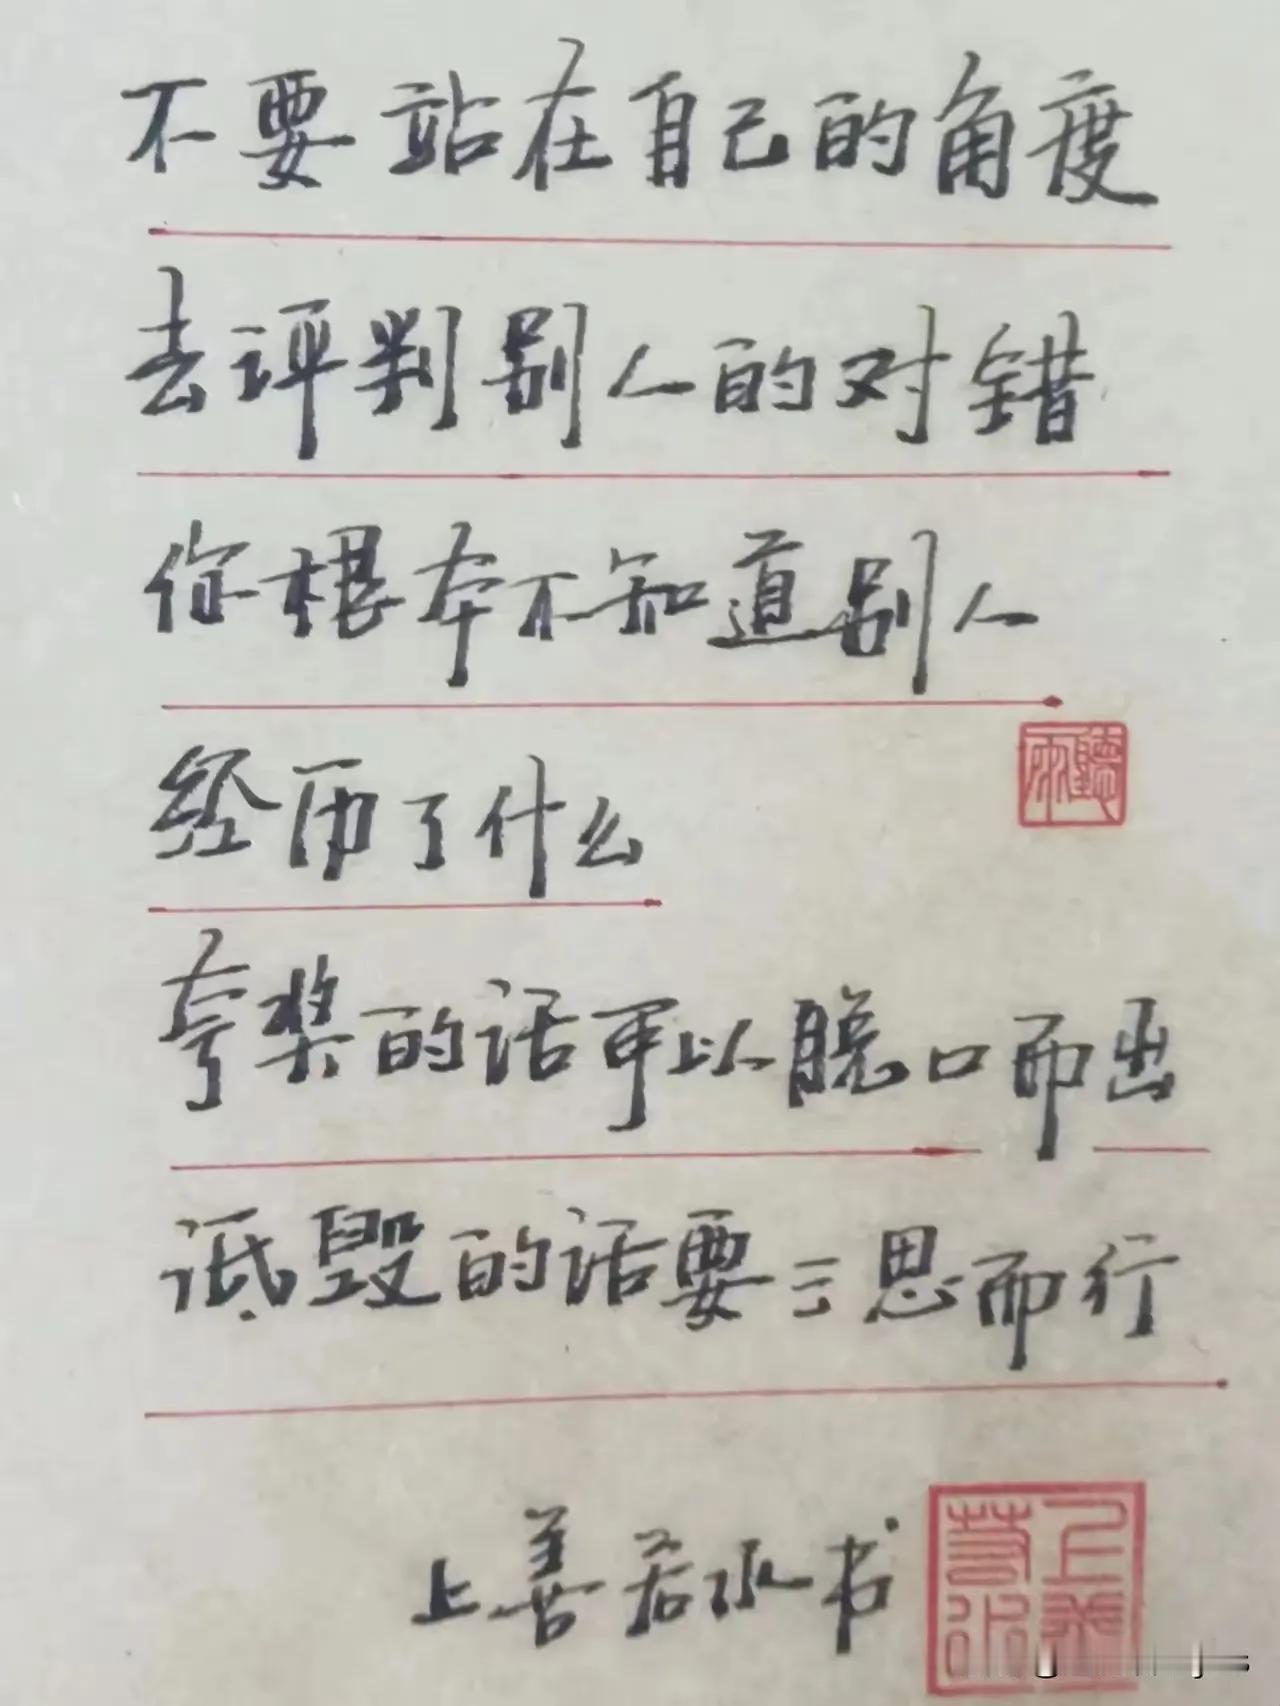 不要站在自己的角度
去评判别人的对错
你根本不知道别人
经历了什么
听雨
夸奖的话可以脱口而出
诋毁的话要三思而行
上善若水书
上善若水